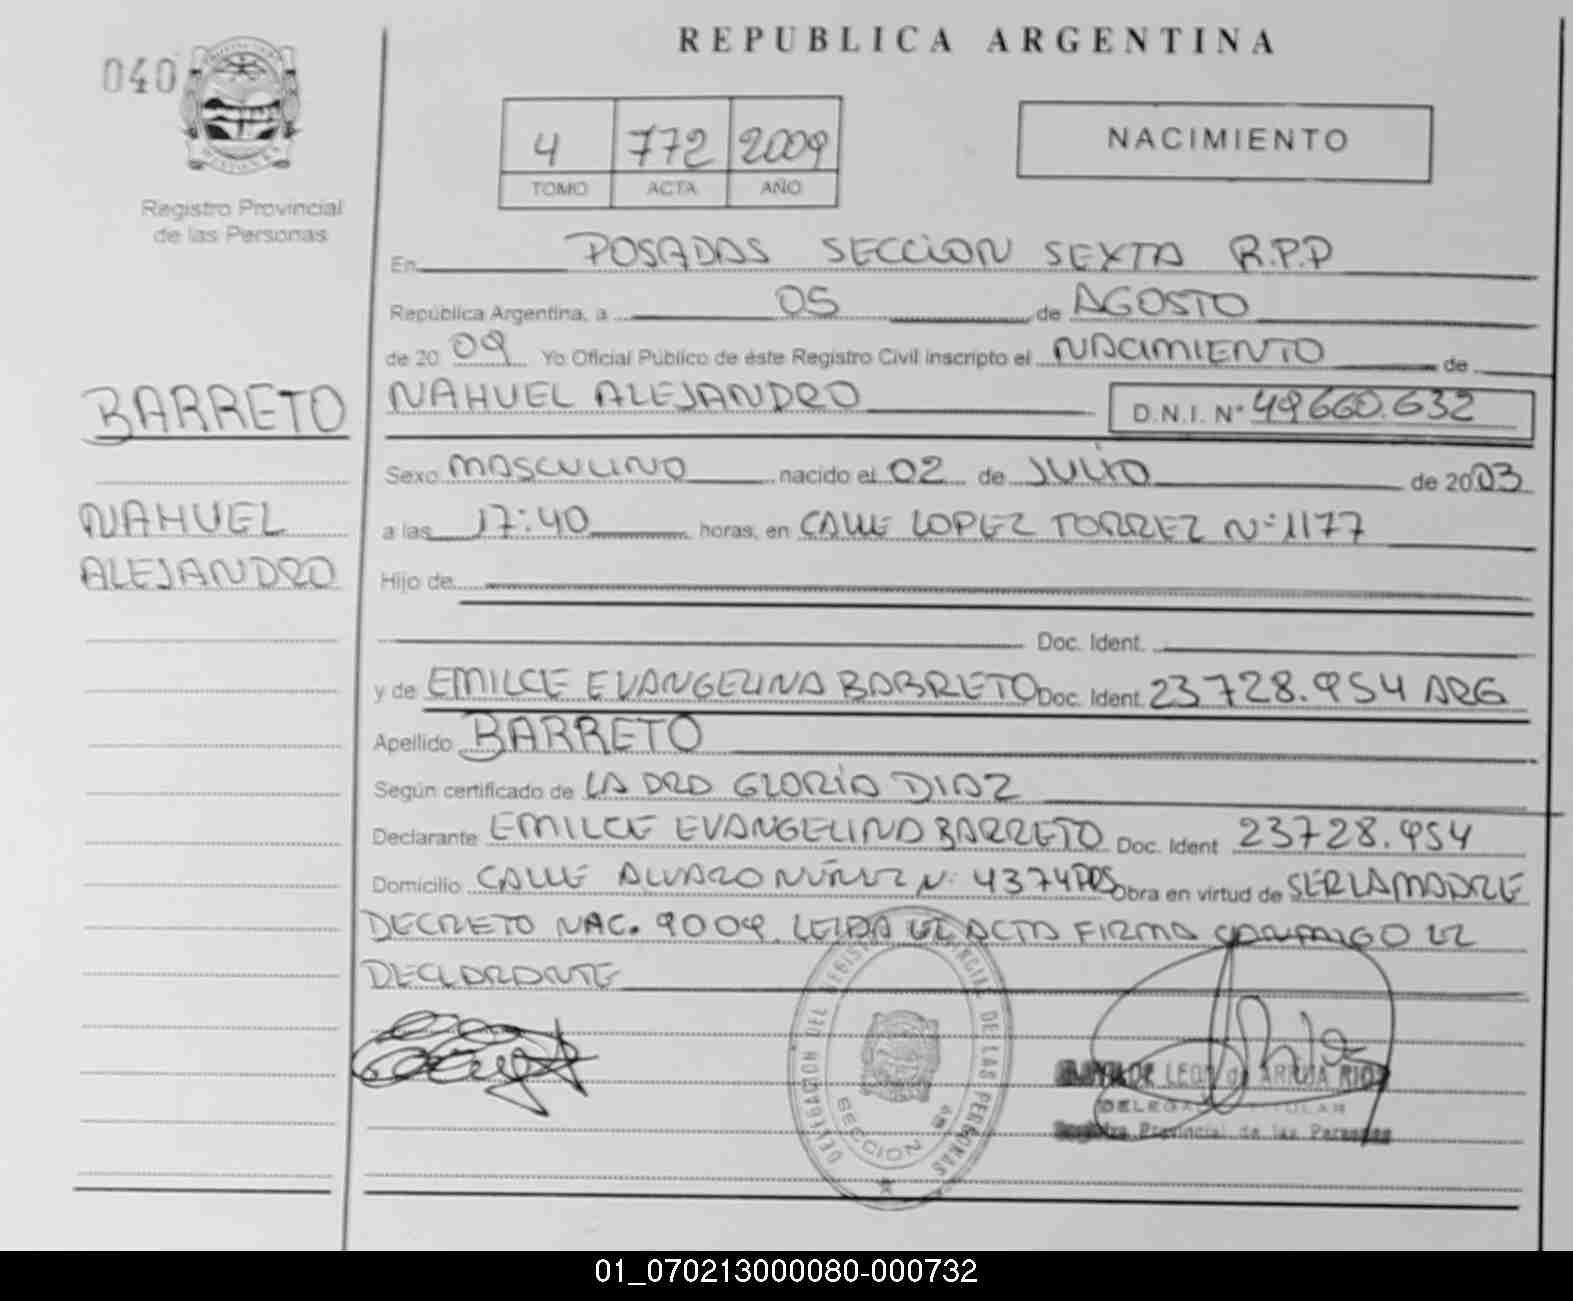 REPUBLICA ARGENTINA
040
4 772 2009
TOMO ACTA AÑO
NACIMIENTO
Registro Provincial
de las Personas
En POSADAS SECCION SEXTA R.P.P
República Argentina, a 05 de AGOSTO
de 20 09 Yo Oficial Público de éste Registro Civil inscripto el NACIMIENTO de
BARRETO NAHUEL ALEJANDRO D.N.I. N° 49660.632
Sexo MASCULINO nacido el 02 de JULIO de 2003
NAHUEL a las 17:40 horas, en CALLE LOPEZ TORREZ N° 1177
ALEJANDRO Hijo de
Doc. Ident.
y de EMILCE EVANGELINA BARRETO Doc. Ident. 23728.954 ARG
Apellido BARRETO
Según certificado de LA DRA GLORIA DIAZ
Declarante EMILCE EVANGELINA BARRETO Doc. Ident 23728.954
Domicilio CALLE ALVARO NUÑEZ N° 4374 POS Obra en virtud de SER LA MADRE
DECRETO NAC. 9009. LEIDA EL ACTA FIRMA CONMIGO LA
DECLARANTE
DELEGACION DEL REGISTRO PROVINCIAL DE LAS PERSONAS
SECCION 6ª
LEON de ARRUA RIOS
DELEGADA TITULAR
Registro Provincial de las Personas
01_070213000080-000732